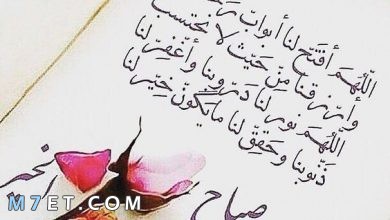 اللَّهُمَ أفتَح لنا أبوابَ رَحمَتِك
وأرزقنا مِنّ حَيّث لا نحتسب
اللَّهُمَ نور لنا دَروبنا وأغفِر لنا
ذَنّوبنا وحَقِّق لنا مايَكونّ خِيّر لنا
صباح
M7ET.COM